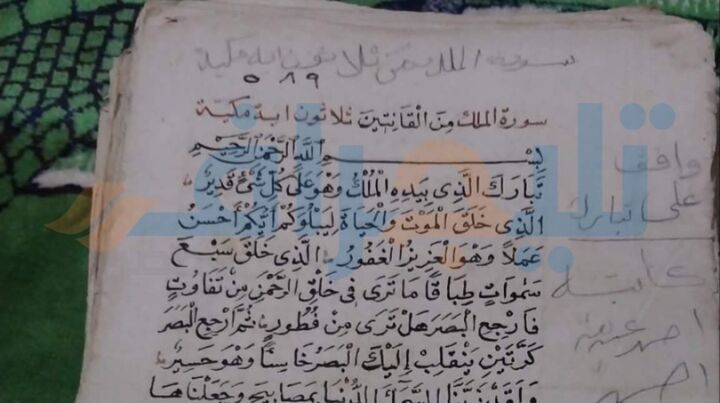 سورة الملك هي ثلاثون اية مكية
٥٨٩
سورة الملك مِنَ القَانِتِينَ ثلاثون اية مكية
بِسْمِ اللَّهِ الرَّحْمَنِ الرَّحِيمِ
تَبَارَكَ الَّذِى بِيَدِهِ المُلْكُ وَهُوَ عَلَى كُلِّ شَئْ قَدِيرٌ
الَّذِى خَلَقَ المَوْتَ وَالْحَيَاةَ لِيَبْلُوَكُمْ أَيُّكُمْ أَحْسَنُ
عَمَلاً وَهُوَ العَزِيزُ الغَفُورُ الَّذِى خَلَقَ سَبْعَ
سَمٰوَاتٍ طِبَاقًا مَا تَرَى فِى خَلْقِ الرَّحْمٰنِ مِنْ تَفَاوُتٍ
فَارْجِعِ الْبَصَرَ هَلْ تَرَى مِنْ فُطُورٍ ثُمَّ ارْجِعِ الْبَصَرَ
كَرَّتَيْنِ يَنْقَلِبْ إِلَيْكَ الْبَصَرُ خَاسِئًا وَهُوَ حَسِيرٌ
وَلَقَدْ زَيَّنَّا السَّمَآءَ الدُّنْيَا بِمَصَابِيحَ وَجَعَلْنَاهَا
واقف
على تبارك
كاتبه
احمد
احمد
تايم